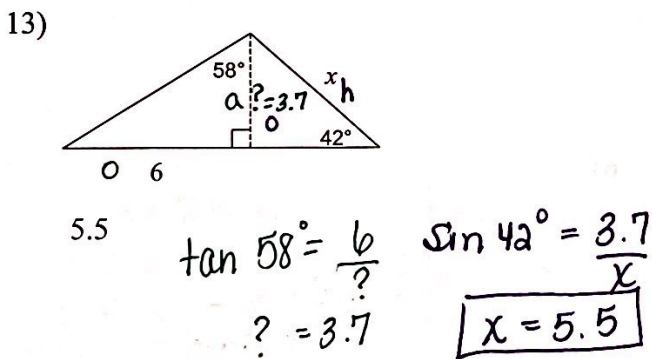 13)
58°
x h
a ?=3.7
O
42°
O 6
5.5
tan 58° = 6/?
sin 42° = 3.7/x
? = 3.7
x = 5.5